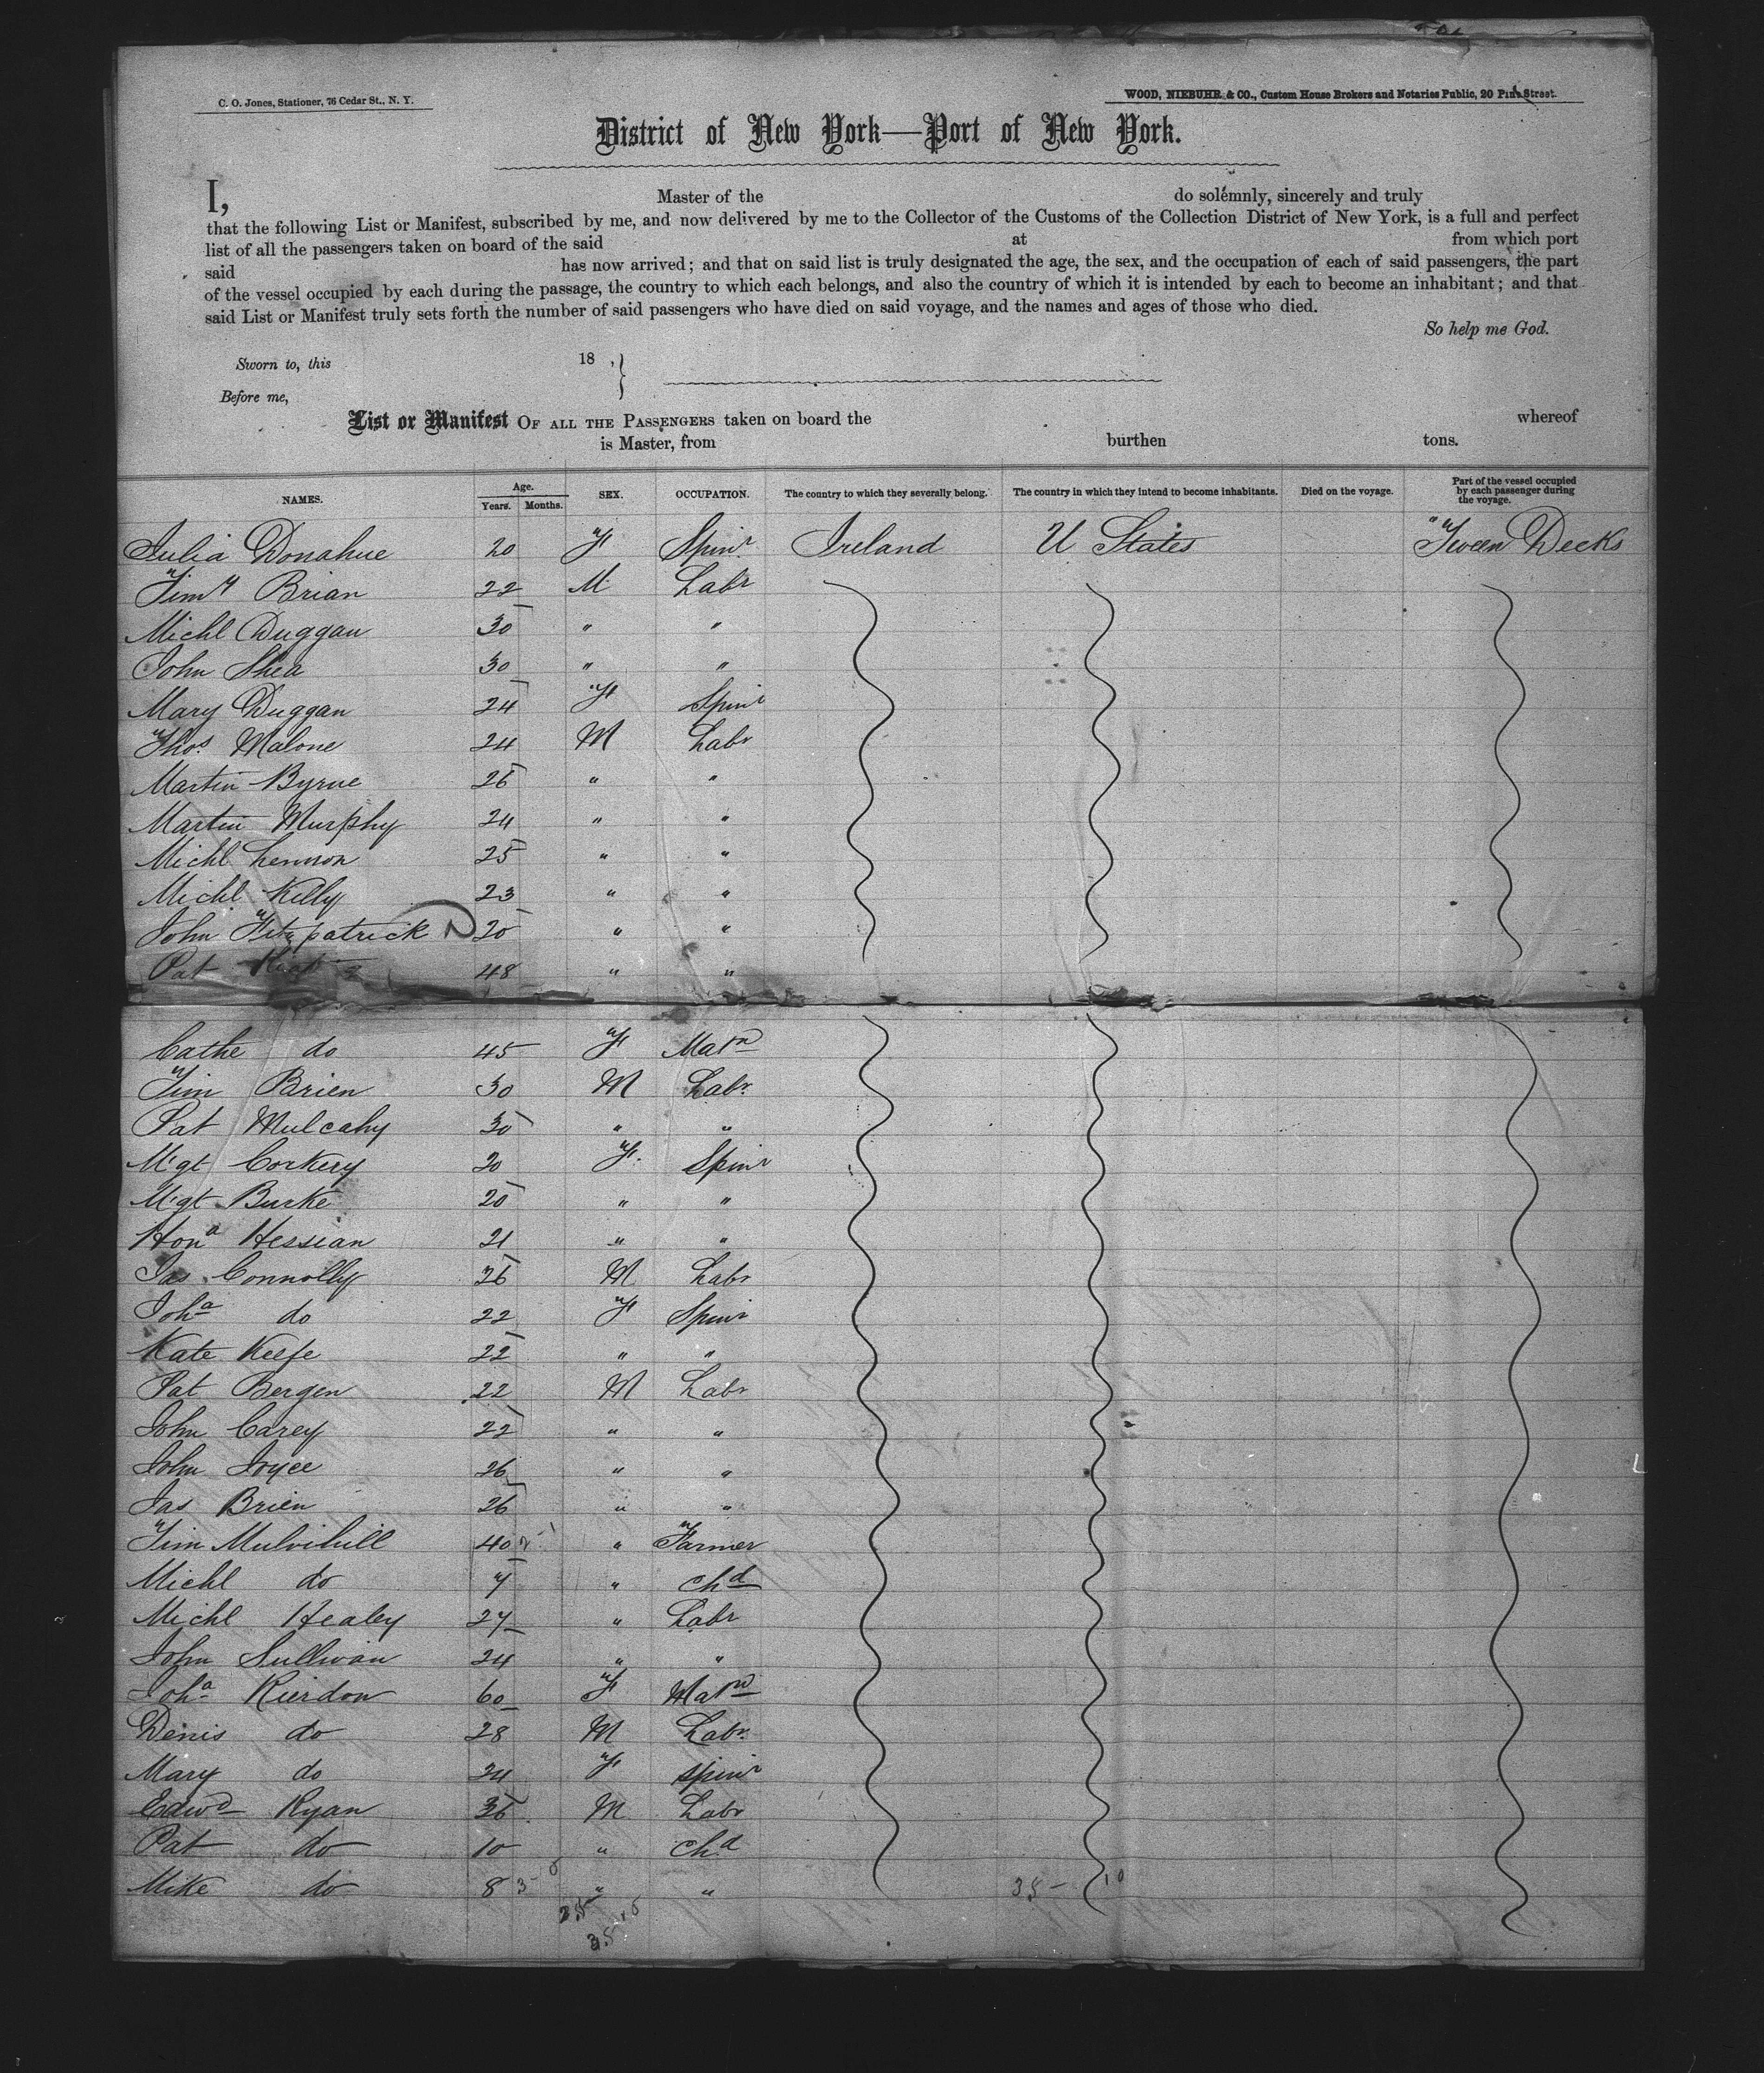 C. O. Jones, Stationer, 76 Cedar St., N. Y.
WOOD, NIEBUHR & CO., Custom House Brokers and Notaries Public, 20 Pine Street.
District of New York—Port of New York.
I, Master of the do solemnly, sincerely and truly
that the following List or Manifest, subscribed by me, and now delivered by me to the Collector of the Customs of the Collection District of New York, is a full and perfect
list of all the passengers taken on board of the said at from which port
said has now arrived; and that on said list is truly designated the age, the sex, and the occupation of each of said passengers, the part
of the vessel occupied by each during the passage, the country to which each belongs, and also the country of which it is intended by each to become an inhabitant; and that
said List or Manifest truly sets forth the number of said passengers who have died on said voyage, and the names and ages of those who died.
So help me God.
Sworn to, this 18 ,
Before me,
List or Manifest OF ALL THE PASSENGERS taken on board the whereof
is Master, from burthen tons.
NAMES. Age. Years. Months. SEX. OCCUPATION. The country to which they severally belong. The country in which they intend to become inhabitants. Died on the voyage. Part of the vessel occupied by each passenger during the voyage.
Julia Donahue 20 F Spinr Ireland U States Tween Decks
Timy Brian 22 M Labr
Michl Duggan 30 " "
John Shea 30 " "
Mary Duggan 24 F Spinr
Thos Malone 24 M Labr
Martin Byrne 26 " "
Martin Murphy 24 " "
Michl Lennon 25 " "
Michl Kelly 23 " "
John Fitzpatrick 20 " "
Pat 48 " "
Cathe do 45 F Matn
Tim Brien 30 M Labr
Pat Mulcahy 30 " "
Mgt Corkery 20 F. Spinr
Mgt Burke 20 " "
Hona Hessian 21 " "
Jas Connolly 26 M Labr
Joha do 22 F Spinr
Kate Keefe 22 " "
Pat Bergen 22 M Labr
John Carey 22 " "
John Joyce 26 " "
Jas Brien 26 " "
Tim Mulvihill 40 " Farmer
Michl do 7 " chd
Michl Healey 27 " Labr
John Sullivan 24 " "
Joha Rierdon 60 F Matn
Denis do 28 M Labr
Mary do 24 F spinr
Edwd Ryan 36 M Labr
Pat do 10 " chd
Mike do 8 " "